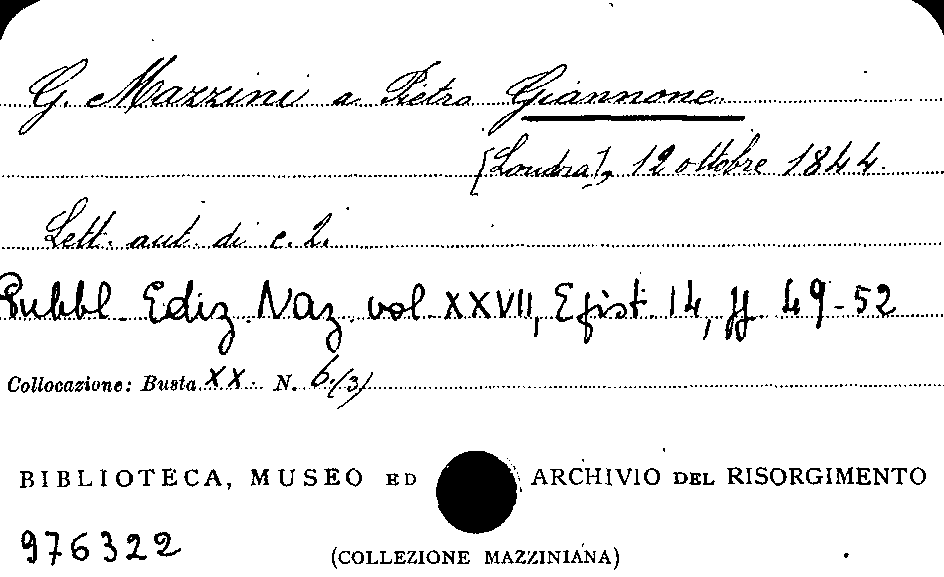 G. Mazzini a Pietro Giannone
[Londra], 12 ottobre 1844.
Lett. aut. di c. 2.
Pubbl. Ediz. Naz. vol. XXVII, Epist. 14, pp. 49-52
Collocazione: Busta XX. N. 6.(3)
BIBLIOTECA, MUSEO ED ARCHIVIO DEL RISORGIMENTO
976322
(COLLEZIONE MAZZINIANA)